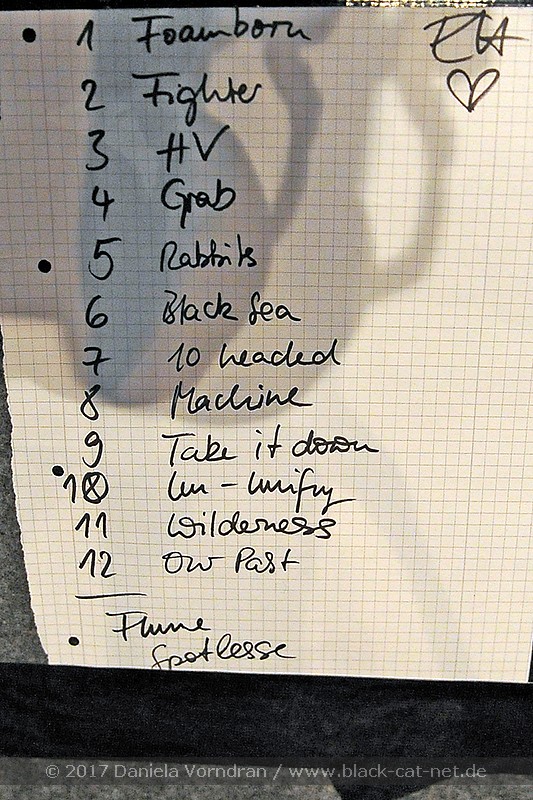 1 Foamborn
2 Fighter
3 HV
4 Grab
5 Rabbits
6 Black Sea
7 10 headed
8 Machine
9 Take it down
10 Un-Unify
11 Wilderness
12 Our Past
Flume
Spotlesse
© 2017 Daniela Vorndran / www.black-cat-net.de